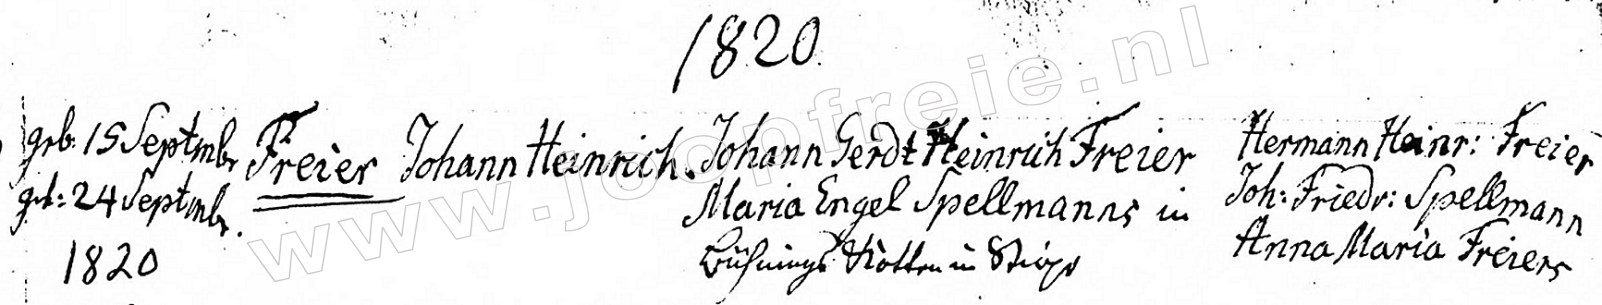 1820
geb. 15 Septmbr
get: 24 Septmbr.
1820
Freier
Johann Heinrich.
Johann Gerdt Heinrich Freier
Maria Engel Spellmanns in
Kotten in
Hermann Heinr: Freier
Joh: Friedr: Spellmann
Anna Maria Freiers
www.joopfreie.nl